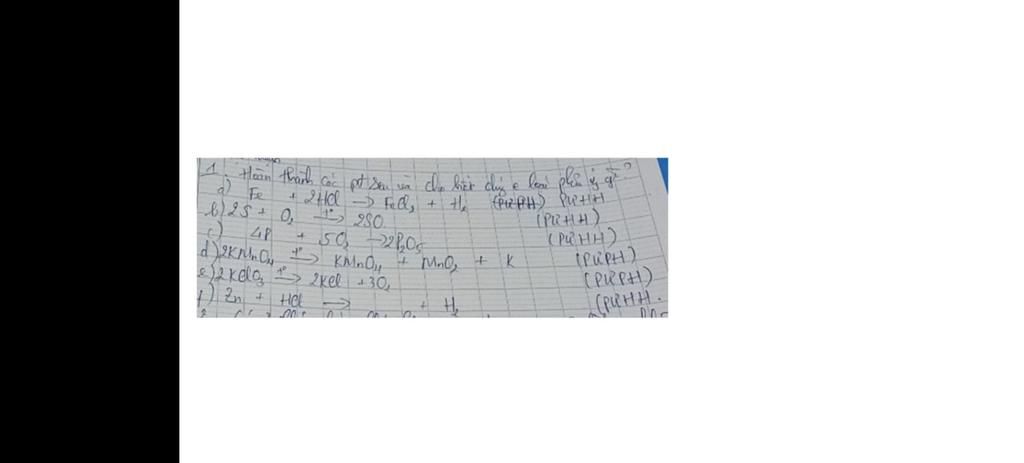 1. Hoàn thành các pt sau và cho biết chúng loại phản ứng gì?
a) Fe + 2HCl → FeCl2 + H2 PƯHH
b) 2S + O2 t° → 2SO (PƯHH)
c) 4P + 5O2 → 2P2O5 (PƯHH)
d) 2KMnO4 t° → KMnO4 + MnO2 + K (PƯPH)
e) 2KClO3 t° → 2KCl + 3O2 (PƯPH)
f) Zn + HCl → + H2 (PƯHH.